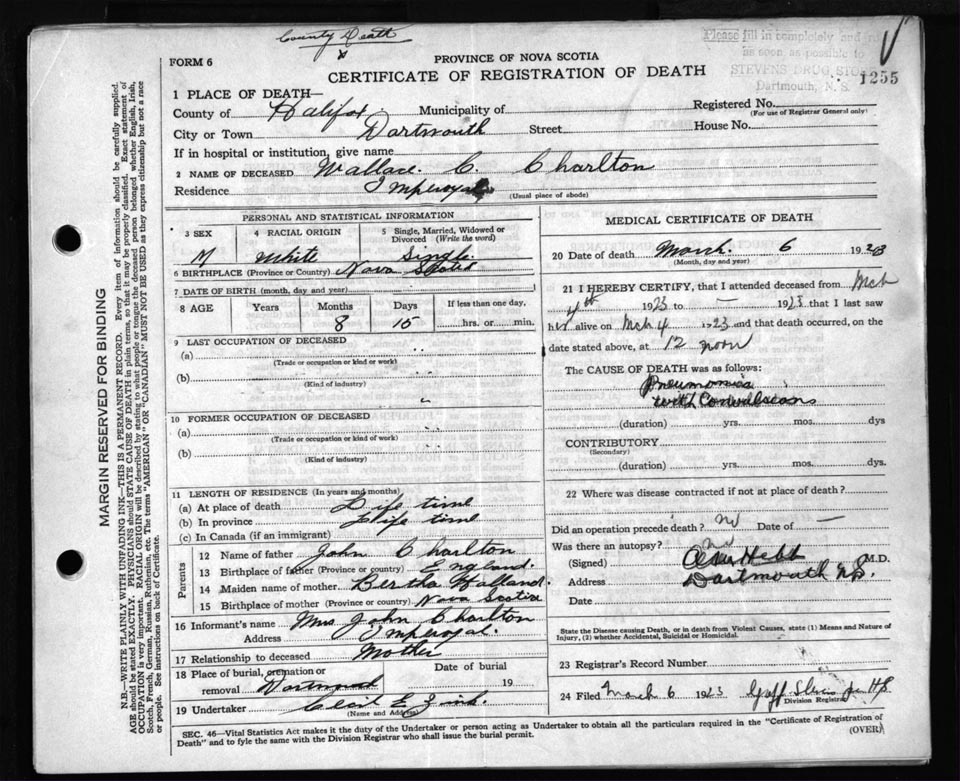 County Death
x
Please fill in completely and
as soon as possible to
STEVENS DRUG STORE
Dartmouth, N. S.
1255
FORM 6
PROVINCE OF NOVA SCOTIA
CERTIFICATE OF REGISTRATION OF DEATH
1 PLACE OF DEATH—
County of Halifax Municipality of Registered No.
(For use of Registrar General only)
City or Town Dartmouth Street House No.
If in hospital or institution, give name
2 NAME OF DECEASED Wallace. C. Charlton
Residence Imperoyal
(Usual place of abode)
PERSONAL AND STATISTICAL INFORMATION
3 SEX 4 RACIAL ORIGIN 5 Single, Married, Widowed or Divorced (Write the word)
M White Single.
6 BIRTHPLACE (Province or Country) Nova Scotia
7 DATE OF BIRTH (month, day and year)
8 AGE Years Months Days If less than one day,
8 15 hrs. or min.
9 LAST OCCUPATION OF DECEASED
(a)
(Trade or occupation or kind or work)
(b)
(Kind of industry)
10 FORMER OCCUPATION OF DECEASED
(a)
(Trade or occupation or kind of work)
(b)
(Kind of Industry)
11 LENGTH OF RESIDENCE (In years and months)
(a) At place of death Life time
(b) In province Life time
(c) In Canada (if an immigrant)
Parents
12 Name of father John Charlton
13 Birthplace of father (Province or country) England.
14 Maiden name of mother Bertha Holland.
15 Birthplace of mother (Province or country) Nova Scotia
16 Informant's name Mrs John Charlton
Address Imperoyal.
17 Relationship to deceased Mother
18 Place of burial, cremation or removal Dartmouth Date of burial 19
19 Undertaker Cecil E. Zink.
(Name and Address)
MEDICAL CERTIFICATE OF DEATH
20 Date of death March. 6 1923
(Month, day and year)
21 I HEREBY CERTIFY, that I attended deceased from Mch
4th 1923 to — 1923 that I last saw
h alive on Mch 4 1923 and that death occurred, on the
date stated above, at 12 noon
The CAUSE OF DEATH was as follows:
Pneumonia
with Convulsions
(duration) yrs. mos. dys
CONTRIBUTORY
(Secondary)
(duration) yrs. mos. dys.
22 Where was disease contracted if not at place of death?
Did an operation precede death? no Date of —
Was there an autopsy? no
(Signed) Hebb M.D.
Address Dartmouth N.S.
Date
State the Disease causing Death, or in death from Violent Causes, state (1) Means and Nature of Injury, (2) whether Accidental, Suicidal or Homicidal.
23 Registrar's Record Number
24 Filed March 6 1923
Division Registrar
SEC. 46—Vital Statistics Act makes it the duty of the Undertaker or person acting as Undertaker to obtain all the particulars required in the "Certificate of Registration of
Death" and to fyle the same with the Division Registrar who shall issue the burial permit. (OVER)
MARGIN RESERVED FOR BINDING
N.B.—WRITE PLAINLY WITH UNFADING INK—THIS IS A PERMANENT RECORD. Every item of information should be carefully supplied.
AGE should be stated EXACTLY. PHYSICIANS should STATE CAUSE OF DEATH in plain terms, so that it may be properly classified. Exact statement of
OCCUPATION is very important. RACIAL ORIGIN will be described by stating to what people or tongue the deceased person belonged whether English, Irish,
Scotch, French, German, Russian, Ruthenian, etc. The terms "AMERICAN" OR "CANADIAN" MUST NOT BE USED as they express citizenship but not a race
or people. See instructions on back of Certificate.